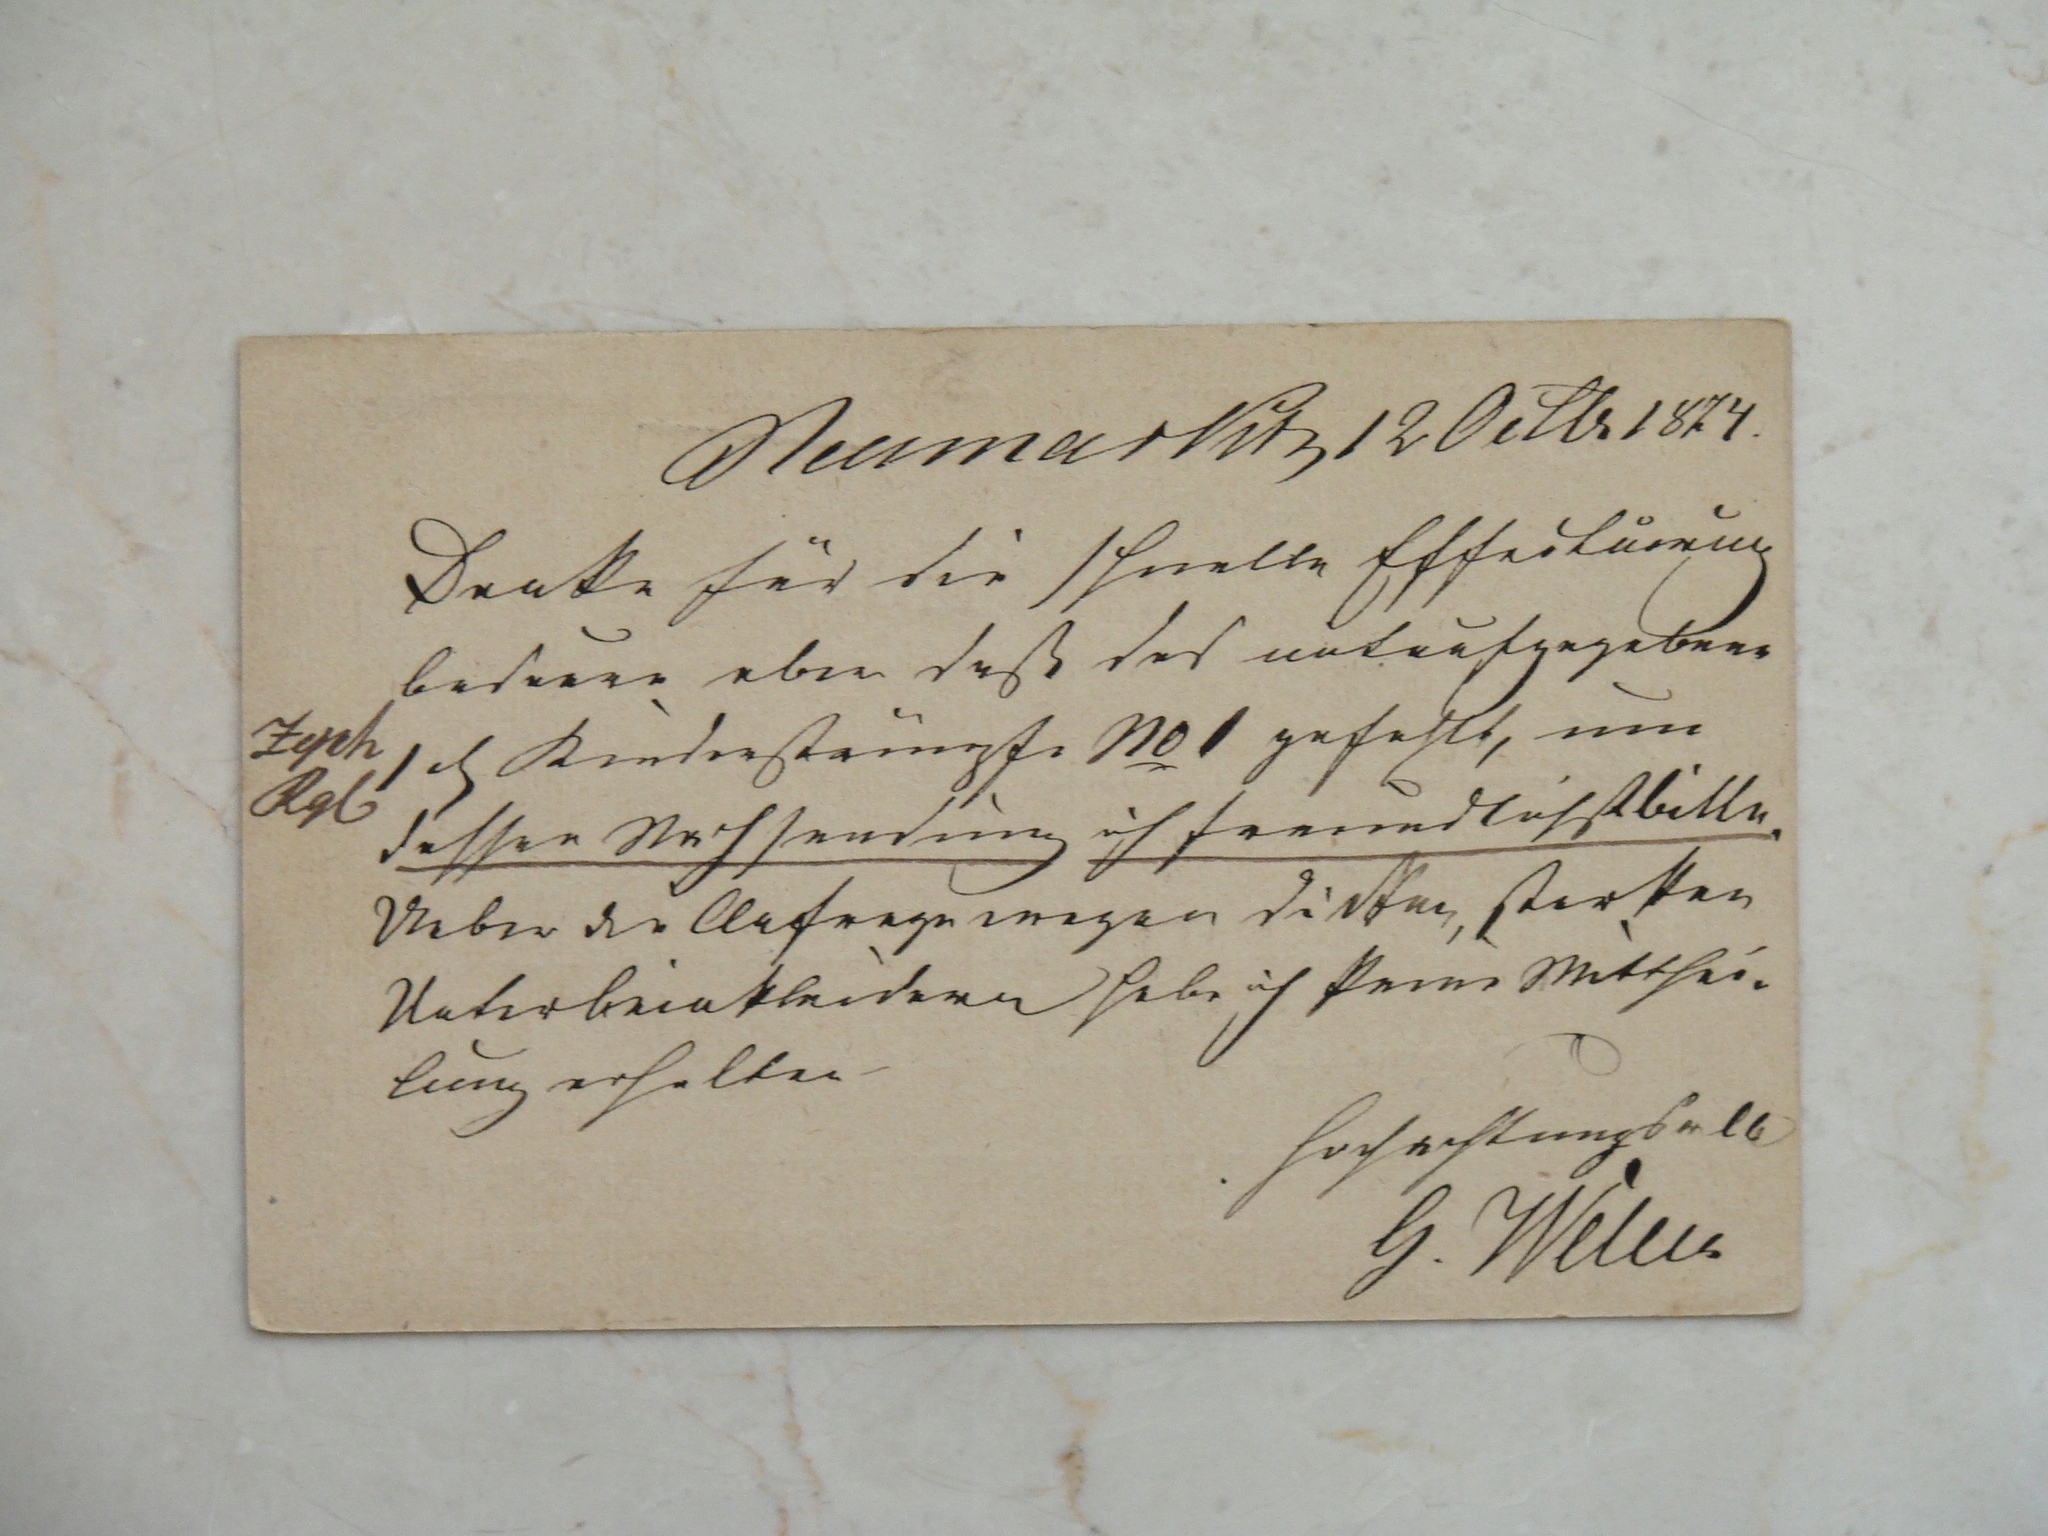 Neumarktl, 12 Octbr 1874.
Danke für die schnelle Effectuirung
bedaure aber daß das untenaufgegebene
Zeph
Rgl
1 d Kinderstrümpfe No 1 gefehlt, um
dessen Nachsendung ich freundlichst bitte.
Ueber die Anfrage wegen dicken, starken
Unterbeinkleidern habe ich keine Mitthei-
lung erhalten
Hochachtungsvoll
G.